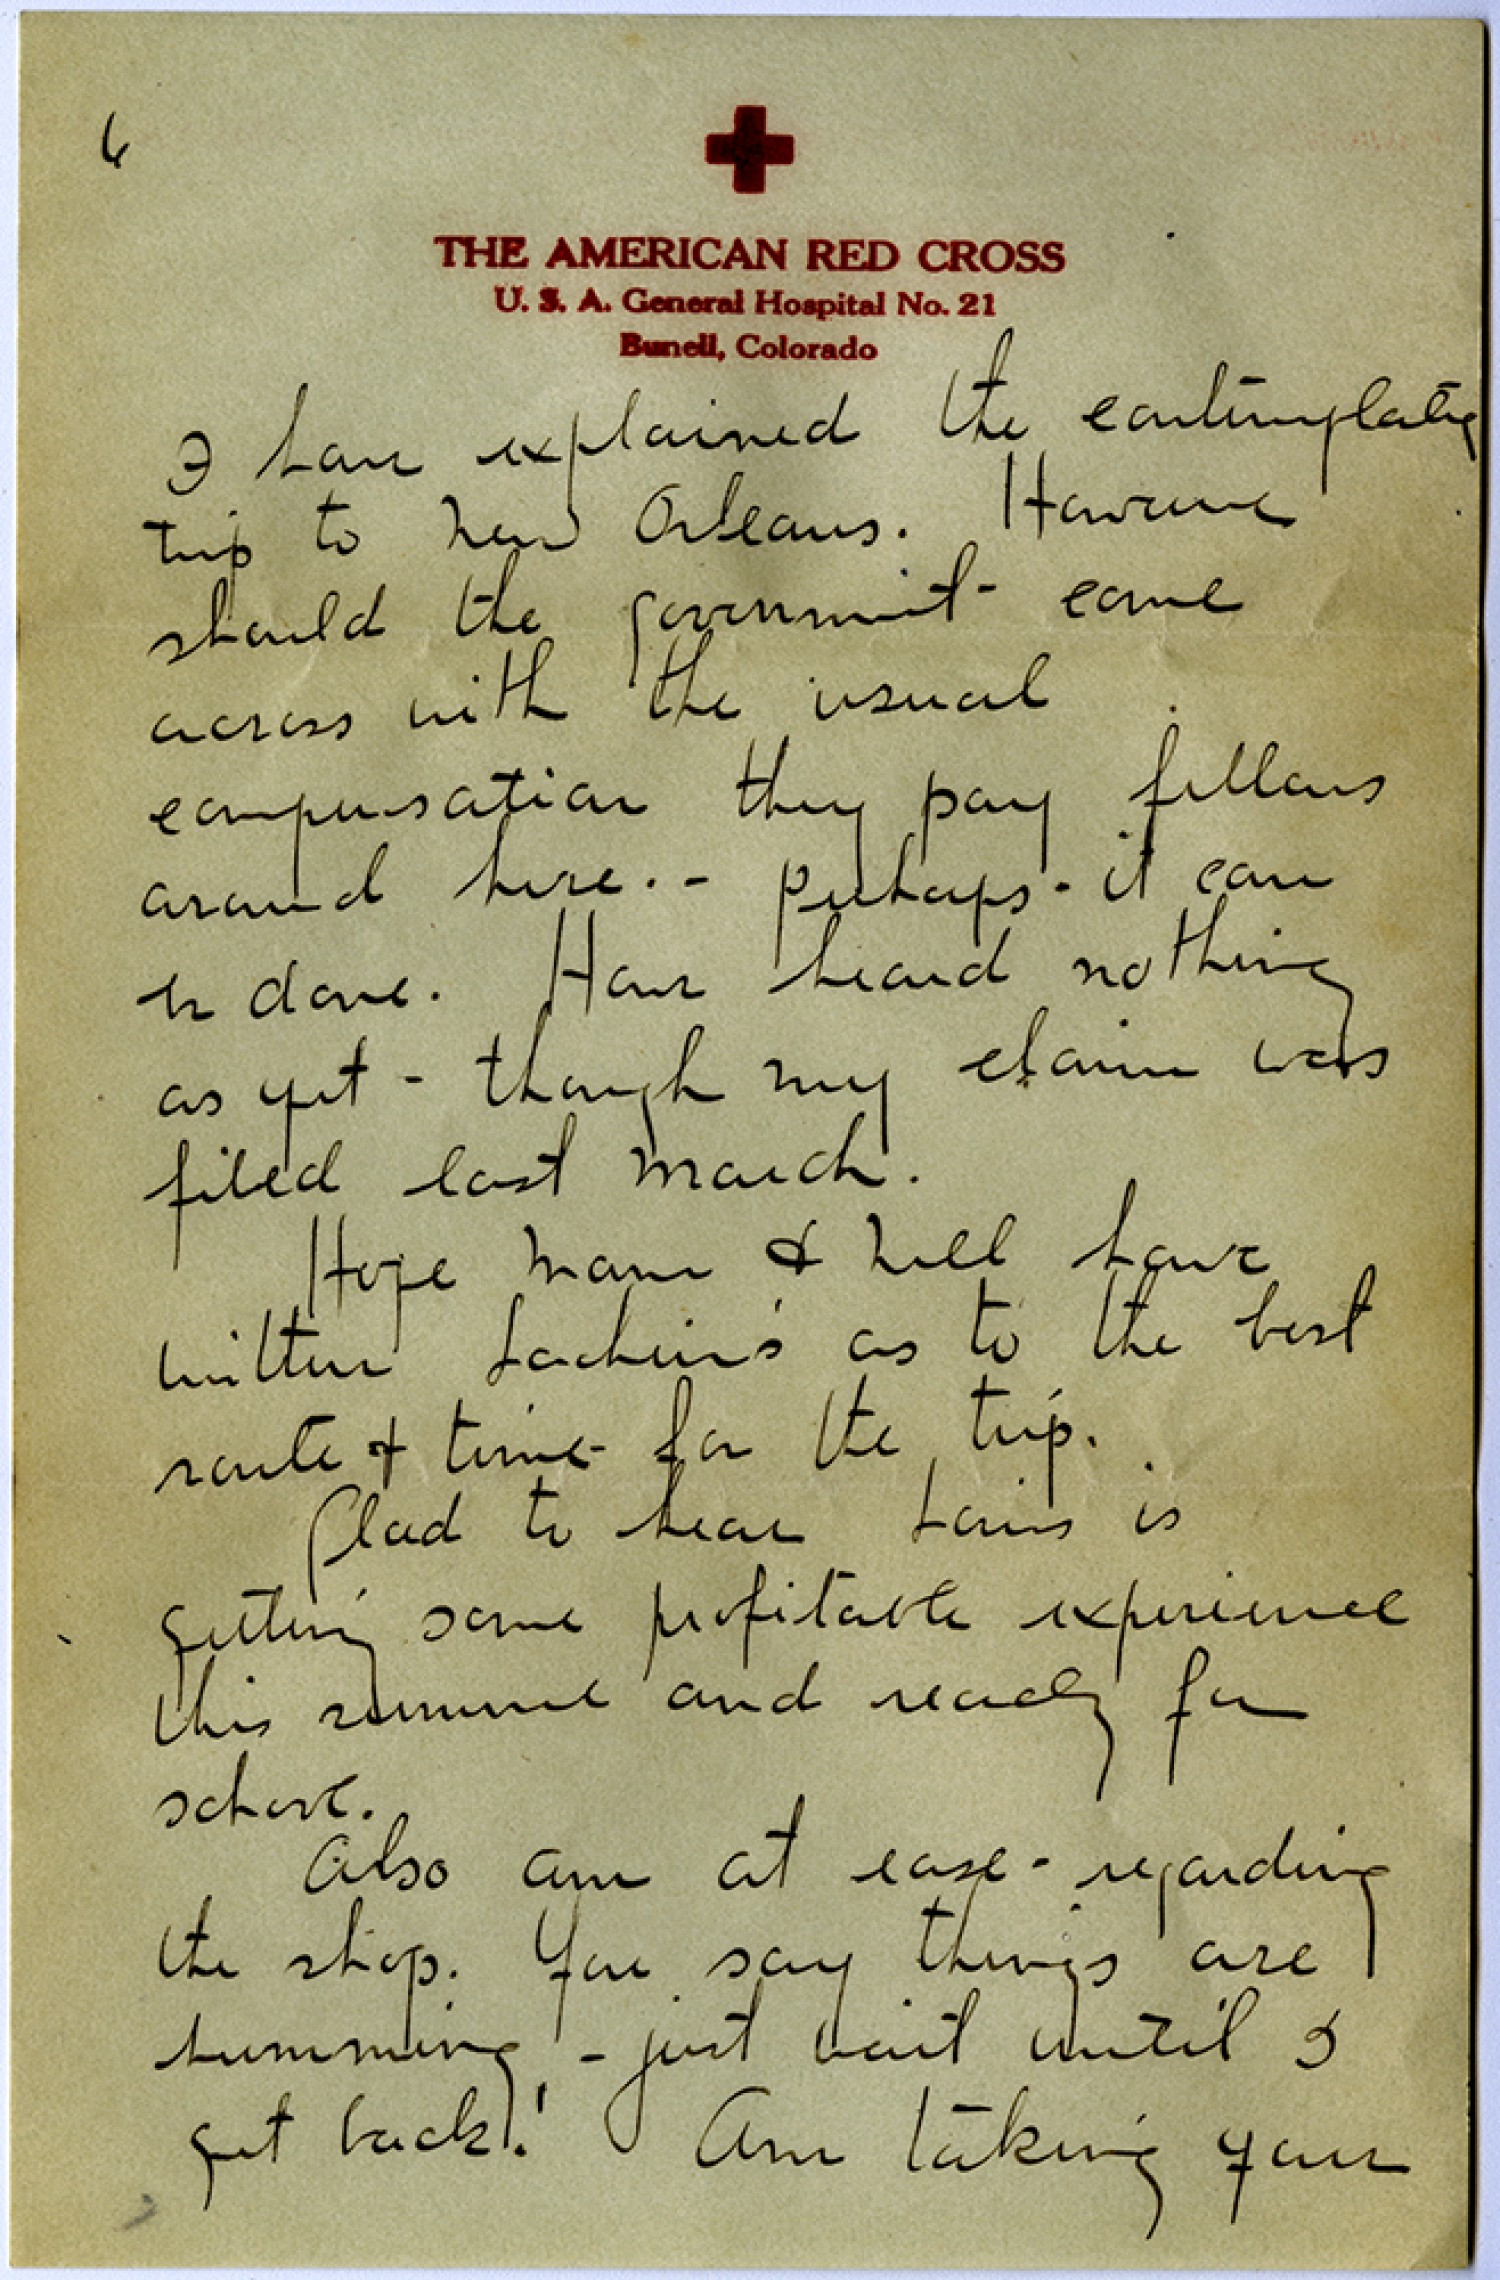 6
THE AMERICAN RED CROSS
U. S. A. General Hospital No. 21
Bunell, Colorado
I have explained the contemplating
trip to New Orleans. However
should the government - come
across with the usual
compensation they pay fellows
around here. - perhaps - it can
be done. Have heard nothing
as yet - though my claim was
filed last March.
Hope Mam & Nell have
written as to the best
route & time for the trip.
Glad to hear Louis is
getting some profitable experience
this summer and ready for
school.
Also am at ease - regarding
the shop. You say things are
humming - just wait until I
get back! Am taking your